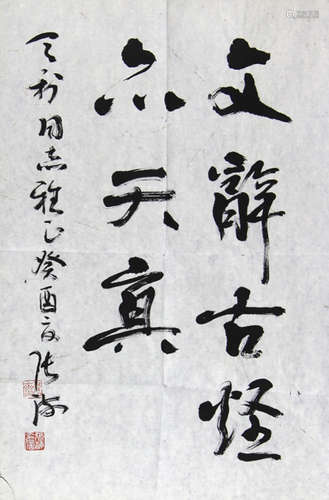 文辭古怪
亦天真
利同志雅正癸酉夏張海